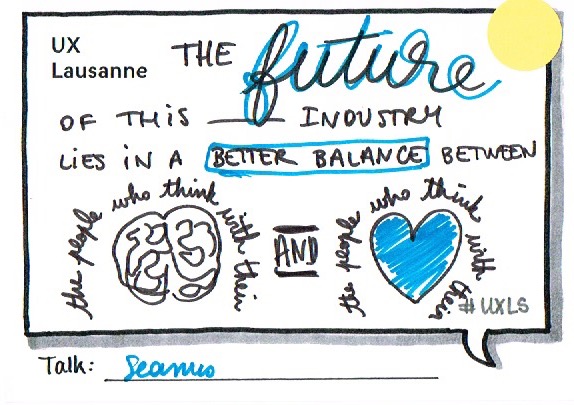 UX
Lausanne
THE future
OF THiS ____ INDUSTRY
LiES iN A BETTER BALANCE BETWEEN
the people who think with their
AND
the people who think with their
#UXLS
Talk: Seamus